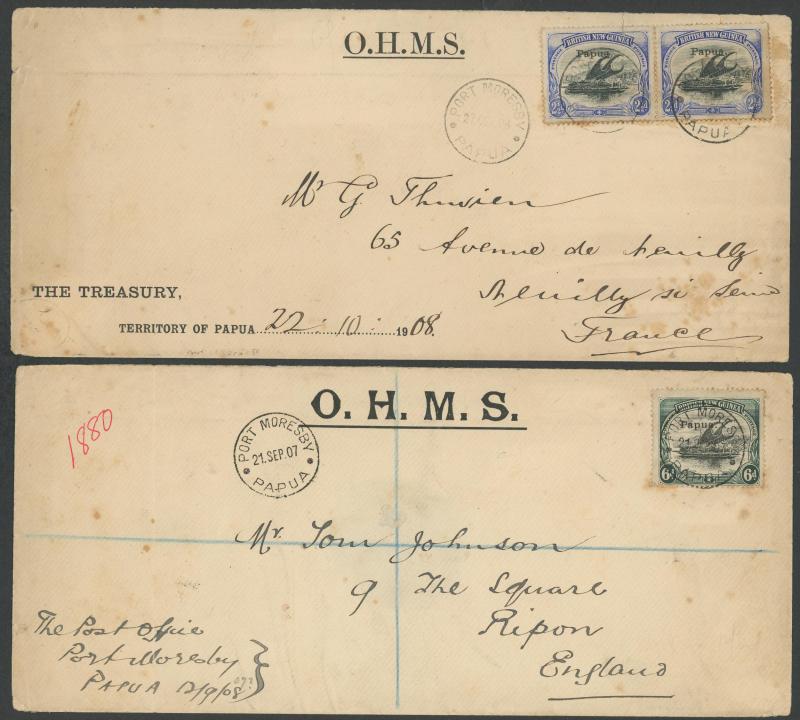 O.H.M.S.
BRITISH NEW GUINEA BRITISH NEW GUINEA
Papua. Papua.
2½d 2½d
PORT MORESBY
PAPUA
PAPUA
Mr G Thuvien
65 Avenue de Neuilly
Neuilly s/ Seine
France
THE TREASURY,
TERRITORY OF PAPUA 22 : 10 : 1908.
O. H. M. S.
1880
PORT MORESBY
21.SEP.07
PAPUA
BRITISH NEW GUINEA
PORT MORESBY
Papua.
PAPUA
6d 6d
Mr. Tom Johnson
9 The Square
Ripon
England
The Post Office
Port Moresby
PAPUA 12/9/08